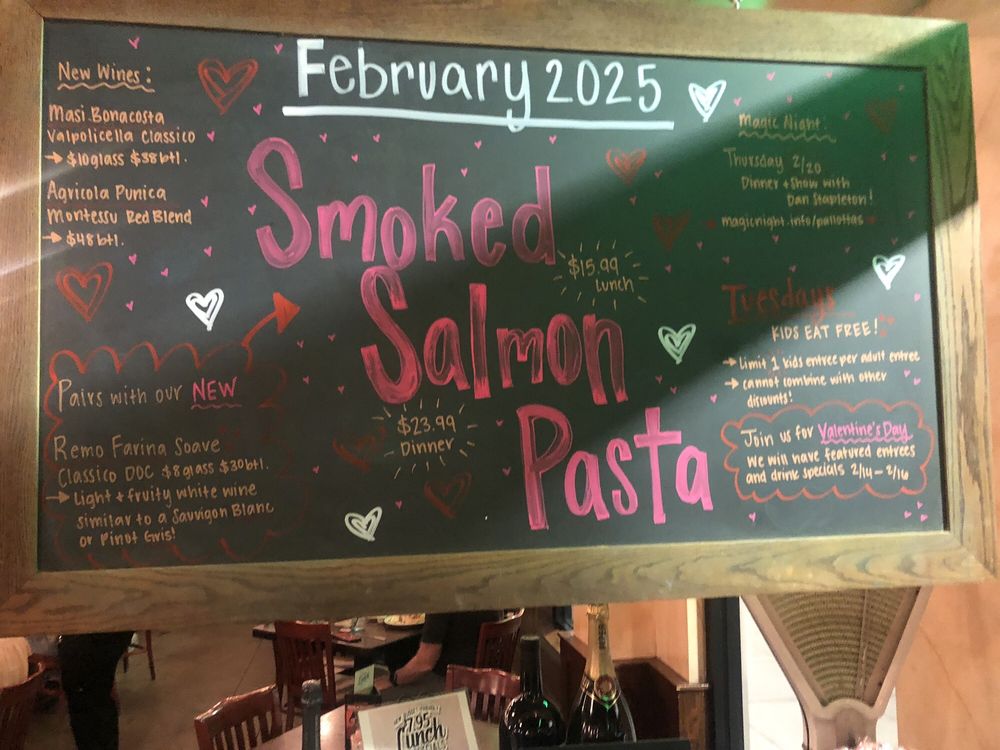 February 2025
New Wines:
Masi Bonacosta
Valpolicella Classico
→ $10glass $38btl.
Agricola Punica
Montessu Red Blend
→ $48btl.
Pairs with our NEW
Remo Farina Soave
Classico DOC $8glass $30btl.
→ Light + fruity white wine
similar to a Sauvignon Blanc
or Pinot Gris!
Smoked
Salmon
Pasta
$15.99
Lunch
$23.99
Dinner
Magic Night:
Thursday 2/20
Dinner + Show with
Dan Stapleton!
magicnight.info/pallottas
Tuesdays
KIDS EAT FREE!
→ Limit 1 kids entree per adult entree
→ cannot combine with other
discounts!
Join us for Valentine's Day
We will have featured entrees
and drink specials 2/14 - 2/16
$7.95
Lunch